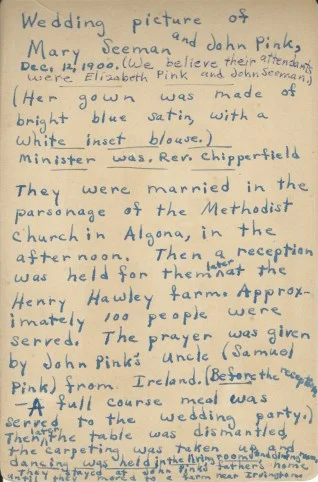 Wedding picture of
Mary Seeman and John Pink,
Dec. 12, 1900. (We believe their attendants
were Elizabeth Pink and John Seeman.)
(Her gown was made of
bright blue satin, with a
white inset blouse.)
Minister was. Rev. Chipperfield
They were married in the
parsonage of the Methodist
Church in Algona, in the
afternoon. Then a reception
was held for them later at the
Henry Hawley farm. Approx-
imately 100 people were
served. The prayer was given
by John Pink's Uncle (Samuel
Pink) from Ireland. (Before the reception
- A full course meal was
served to the wedding party.)
Then later the table was dismantled,
the carpeting was taken up and
dancing was held in the living room and dining room.
They stayed at John Pink's father's home
until they moved to a farm near Irvington